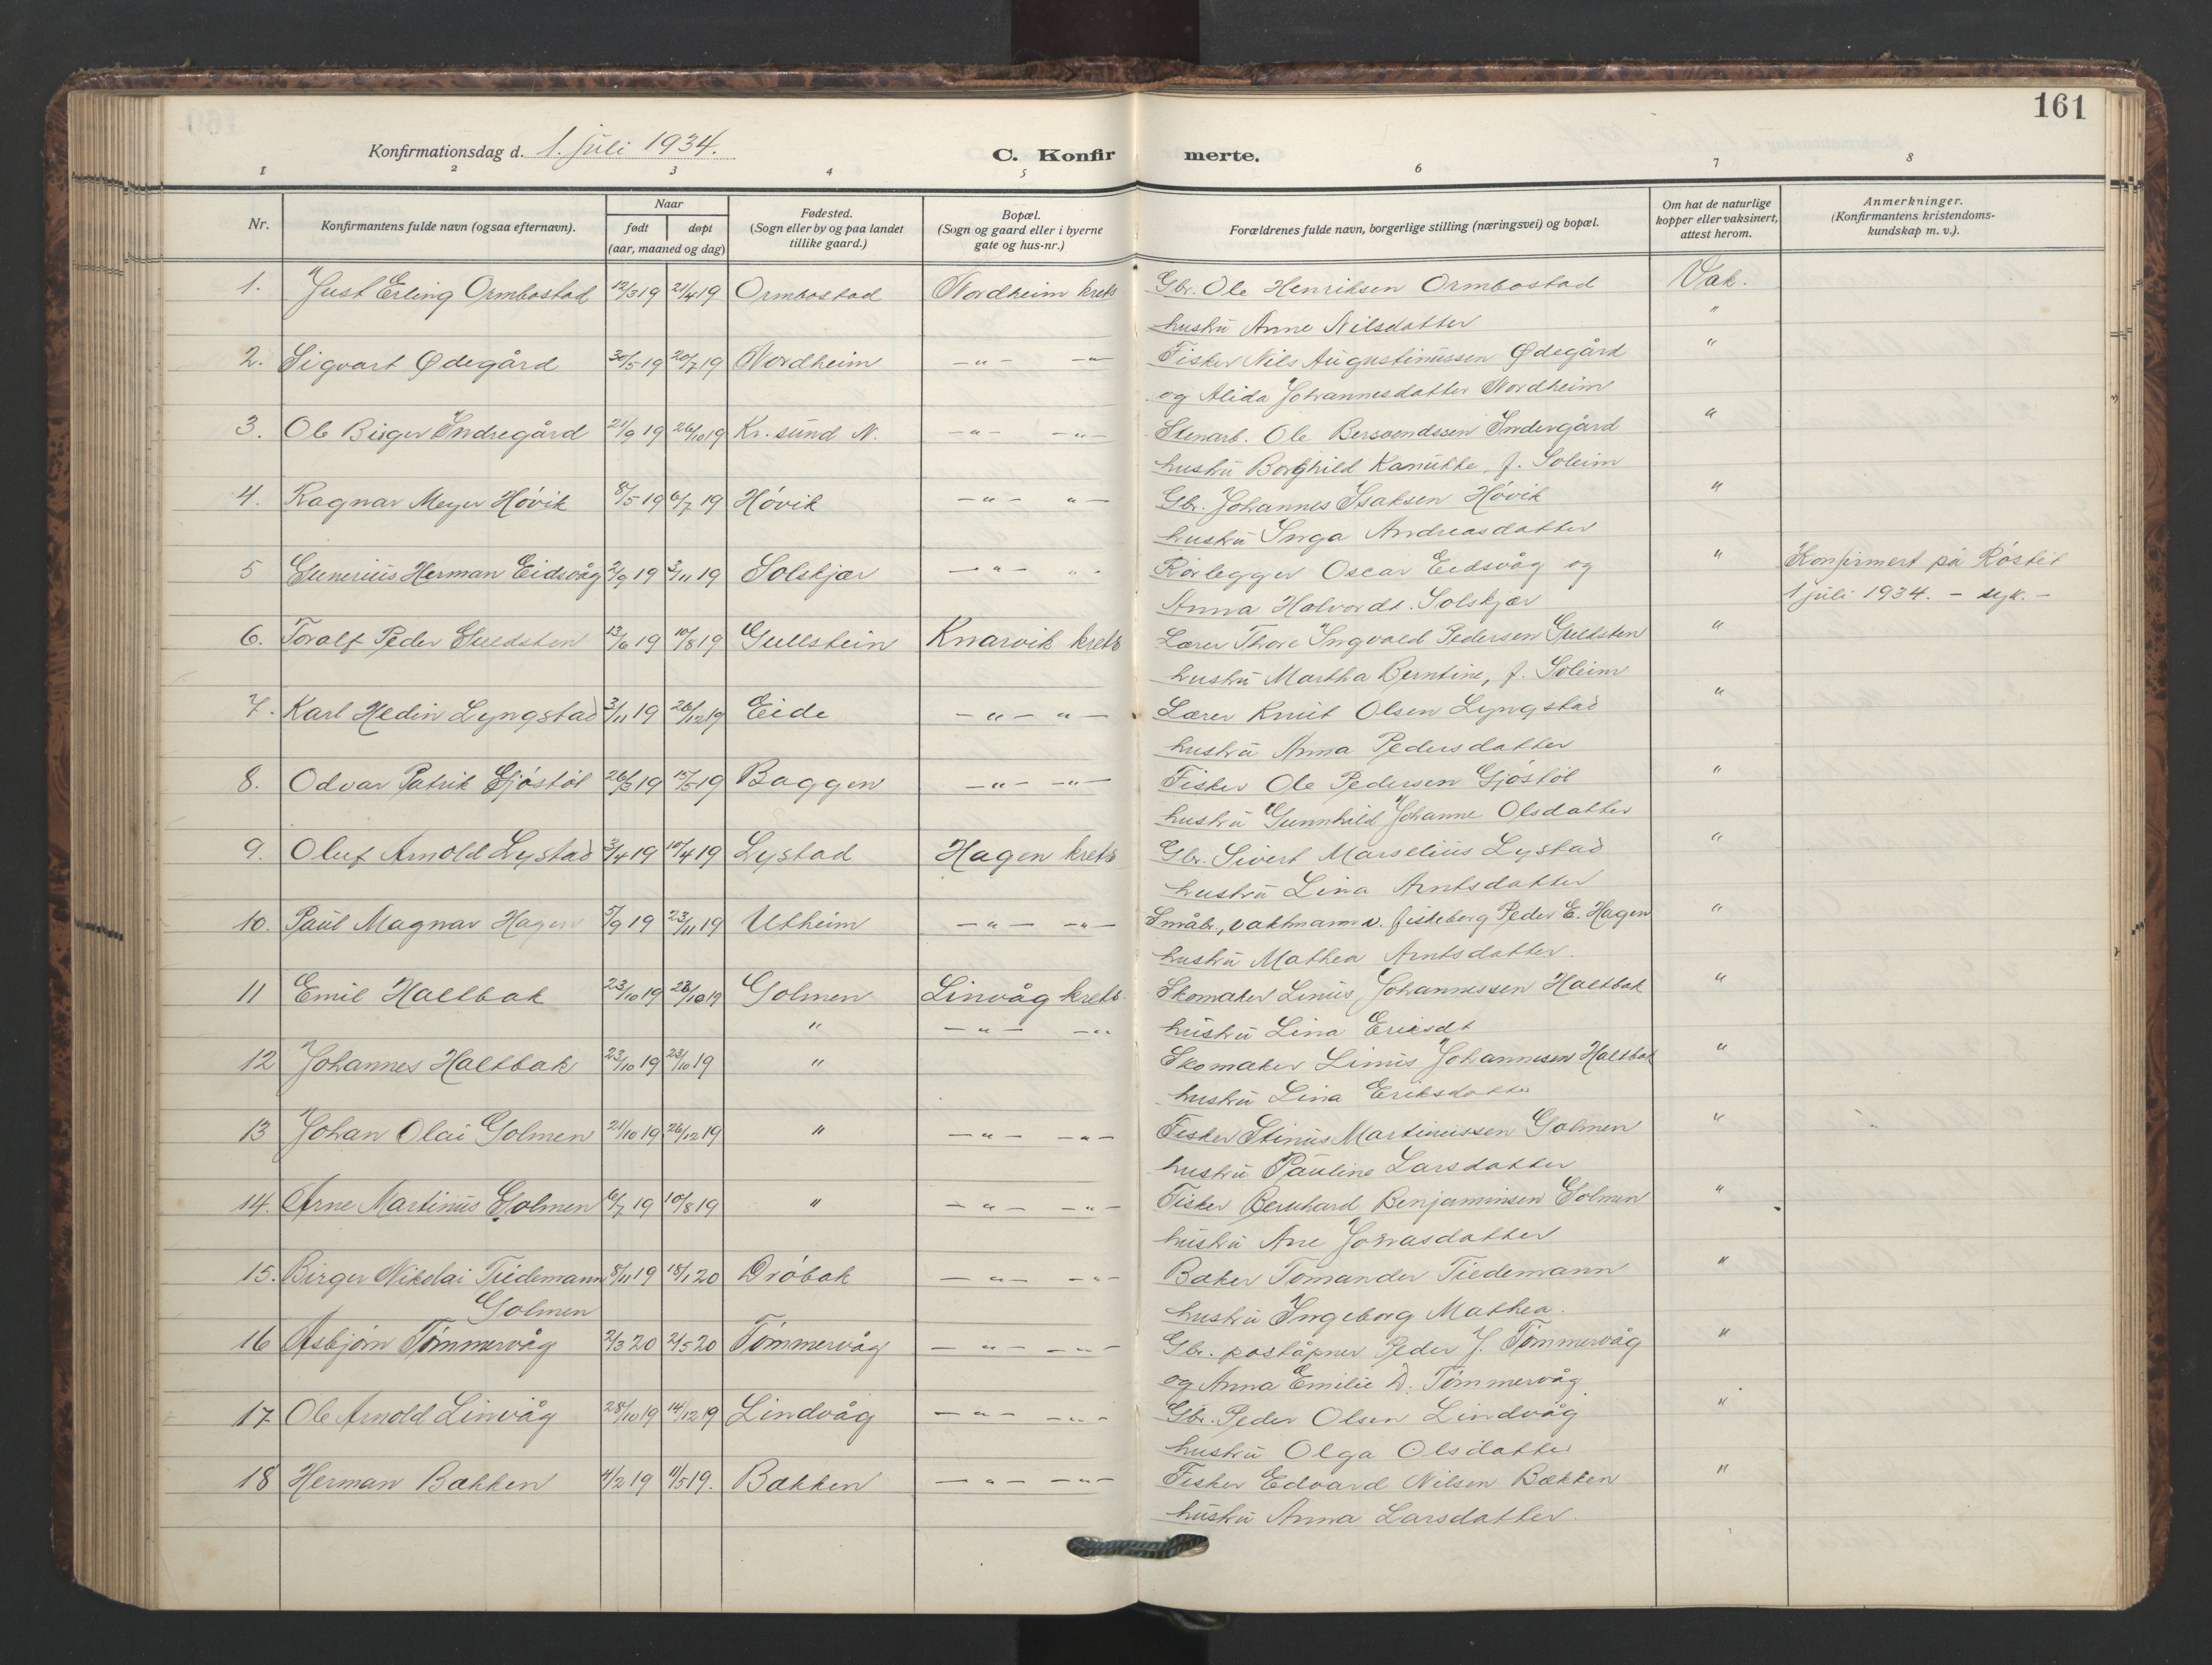 161
Konfirmationsdag d. 1. juli 1934.
C. Konfirmerte.
1 2 3 4 5 6 7 8
Nr.
Konfirmantens fulde navn (ogsaa efternavn).
Naar
født døpt
(aar, maaned og dag)
Fødested.
(Sogn eller by og paa landet
tillike gaard.)
Bopæl.
(Sogn og gaard eller i byerne
gate og hus-nr.)
Forældrenes fulde navn, borgerlige stilling (næringsvei) og bopæl.
Om hat de naturlige
kopper eller vaksinert,
attest herom.
Anmerkninger.
(Konfirmantens kristendoms-
kundskap m. v.).
1. Just Erling Ormbostad 12/3 19 21/4 19 Ormbostad Nordheim krets Gbr. Ole Henriksen Ormbostad Vak.
hustru Anne Nilsdatter "
2. Sigvart Ødegård 30/5 19 20/7 19 Nordheim -"- -"- Fisker Nils Augustinussen Ødegård "
og Alida Johannesdatter Nordheim
3. Ole Birger Indregård 21/9 19 26/10 19 Kr.sund N. -"- -"- Stenarb. Ole Bersvendssen Indergård "
hustru Borghild Kanutte, f. Soleim
4. Ragnar Meyer Hóvik 8/5 19 6/7 19 Hóvik -"- "- Gbr. Johannes Isaksen Hóvik "
hustru Inga Andreasdatter
5 Gunerius Herman Eidsvåg 2/9 19 3/11 19 Solskjær -"- "- Rørlegger Oscar Eidsvåg og " Konfirmert på Róstet
Anna Halvordt. Solskjær 1 juli 1934. - syk. -
6. Toralf Peder Guldsten 13/6 19 10/8 19 Gullstein Knarvik krets Lærer Thore Ingvald Pedersen Guldsten "
hustru Martha Berntine, f. Soleim
7. Karl Hedin Lyngstad 3/11 19 26/12 19 Eide -"- "- Lærer Knut Olsen Lyngstad "
hustru Anna Pedersdatter
8. Odvar Patrik Gjóstøl 26/3 19 15/5 19 Baggen -"- -"- Fisker Ole Pedersen Gjóstøl "
hustru Gunnhild Johanne Olsdatter
9. Oluf Arnold Lystad 3/4 19 10/4 19 Lystad Hagen krets Gbr. Sivert Marselius Lystad "
hustru Lina Arntsdatter
10. Paul Magnar Hagen 5/9 19 23/11 19 Utheim -"- -"- Småbr., vaktmann v. fiskeborg Peder E. Hagen "
hustru Mathea Arntsdatter.
11 Emil Haltbak 23/10 19 28/10 19 Golmen Linvåg krets. Skomaker Linus Johannessen Haltbak "
" -"- -"- hustru Lina Eriksdt
12 Johannes Haltbak 23/10 19 23/10 19 " Skomaker Linus Johannesen Haltbak "
hustru Lina Eriksdatter
13 Johan Olai Golmen 21/10 19 26/12 19 " -"- -"- Fisker Stinus Martinussen Golmen "
hustru Pauline Larsdatter
14. Arne Martinus Golmen 6/7 19 10/8 19 " -"- -"- Fisker Bernhard Benjaminsen Golmen "
hustru Ane Jonasdatter
15. Birger Nikolai Tiedemann 8/11 19 18/1 20 Dróbak -"- -"- Baker Tomander Tiedemann "
Golmen hustru Ingeborg Mathea.
16 Asbjørn Tømmervåg 2/3 20 2/5 20 Tómmervåg -"- -"- Gbr. poståpner Peder J. Tømmervåg "
og Anna Emilie D. Tómmervåg
17 Ole Arnold Linvåg 28/10 19 14/12 19 Lindvåg -"- -"- Gbr. Peder Olsen Lindvåg "
hustru Olga Olsdatter
18 Herman Bækken 4/2 19 11/5 19. Bækken -"- -"- Fisker Edvard Nilsen Bækken "
hustru Anna Larsdatter.